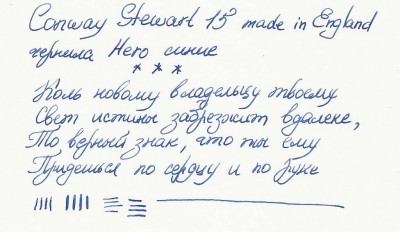 Conway Stewart 15 made in England
чернила Hero синие
* * *
Коль новому владельцу твоему
Свет истины забрезжит вдалеке,
То верный знак, что ты ему
Придешься по сердцу и по руке